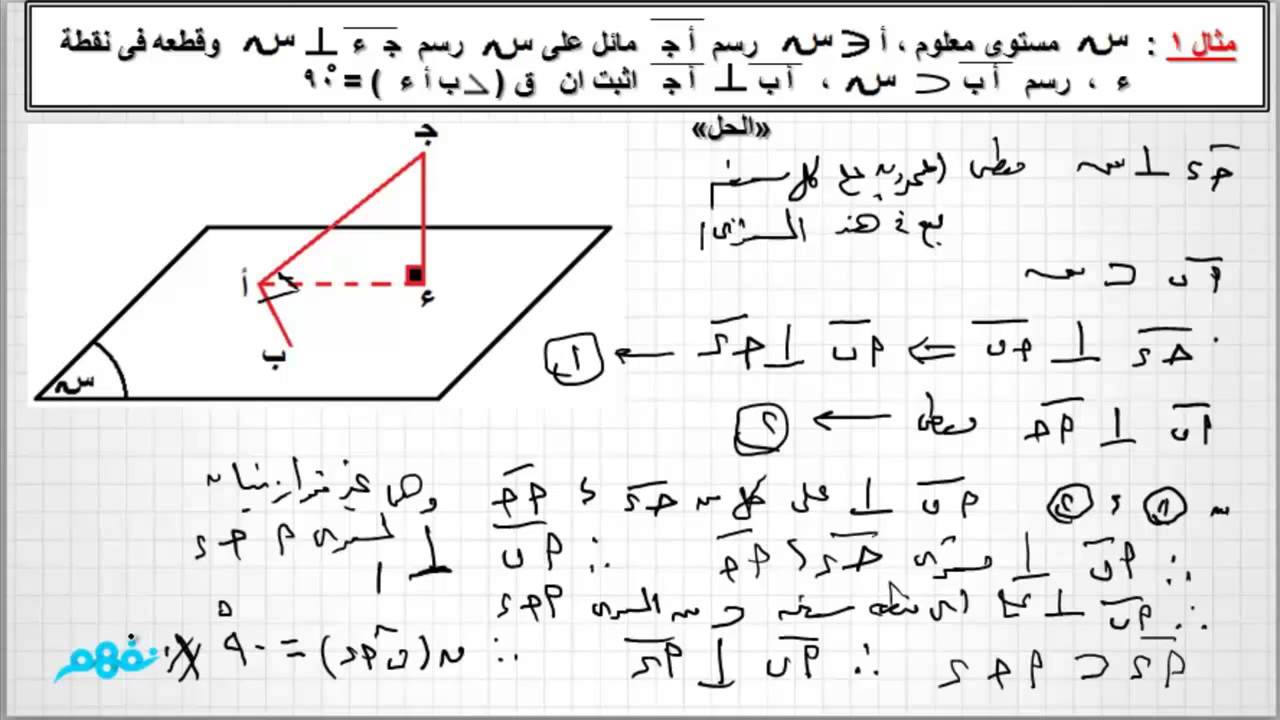 مثال ١ : س مستوى معلوم ، أ ∈ س رسم أ جـ مائل على س رسم جـ ء ⊥ س وقطعه فى نقطة
ء ، رسم أب ⊂ س ، أب ⊥ أجـ اثبت ان ق ( ∠ ب أ ء ) = ٩٠°
«الحل»
جـ
أ
ء
ب
س
جـ ء ⊥ س معطى (عمودية على كل مستقيم
يقع فى هذا المستوى)
أ ب ⊂ س
جـ ء ⊥ أ ب ⇐ أ ب ⊥ جـ ء ← ١
أ ب ⊥ أ جـ معطى ← ٢
من ١ ، ٢ أ ب ⊥ على كل من جـ ء ، أ جـ وهى غير متوازيان
∴ أ ب ⊥ مستوى جـ ء ، أ جـ ∴ أ ب ⊥ المستوى أ جـ ء
∴ أ ب ⊥ على أى مستقيمة ⊂ المستوى أ جـ ء
أ ء ⊂ أ جـ ء ∴ أ ب ⊥ أ ء ∴ ق (ب أ ء) = ٩٠°
نفهم